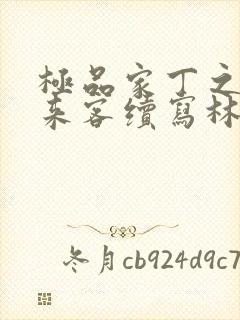 極品家丁之
来客續寫林
冬月cb924d9c7